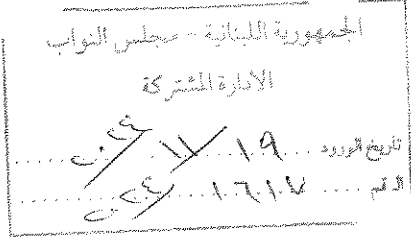 الجمهورية اللبنانية - مجلس النواب
الادارة المشتركة
تاريخ الورود ١٩/١١/
الرقم